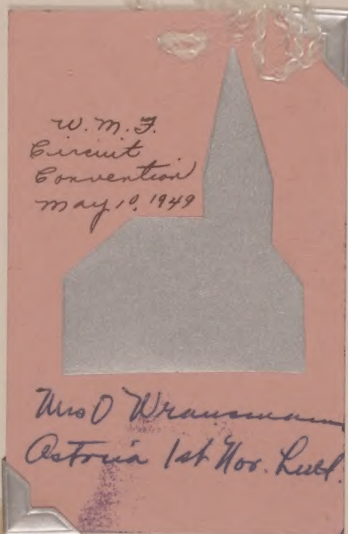 W. M. F.
Circuit
Convention
May 10, 1949
Mrs O
Astoria 1st Nor. Luth.